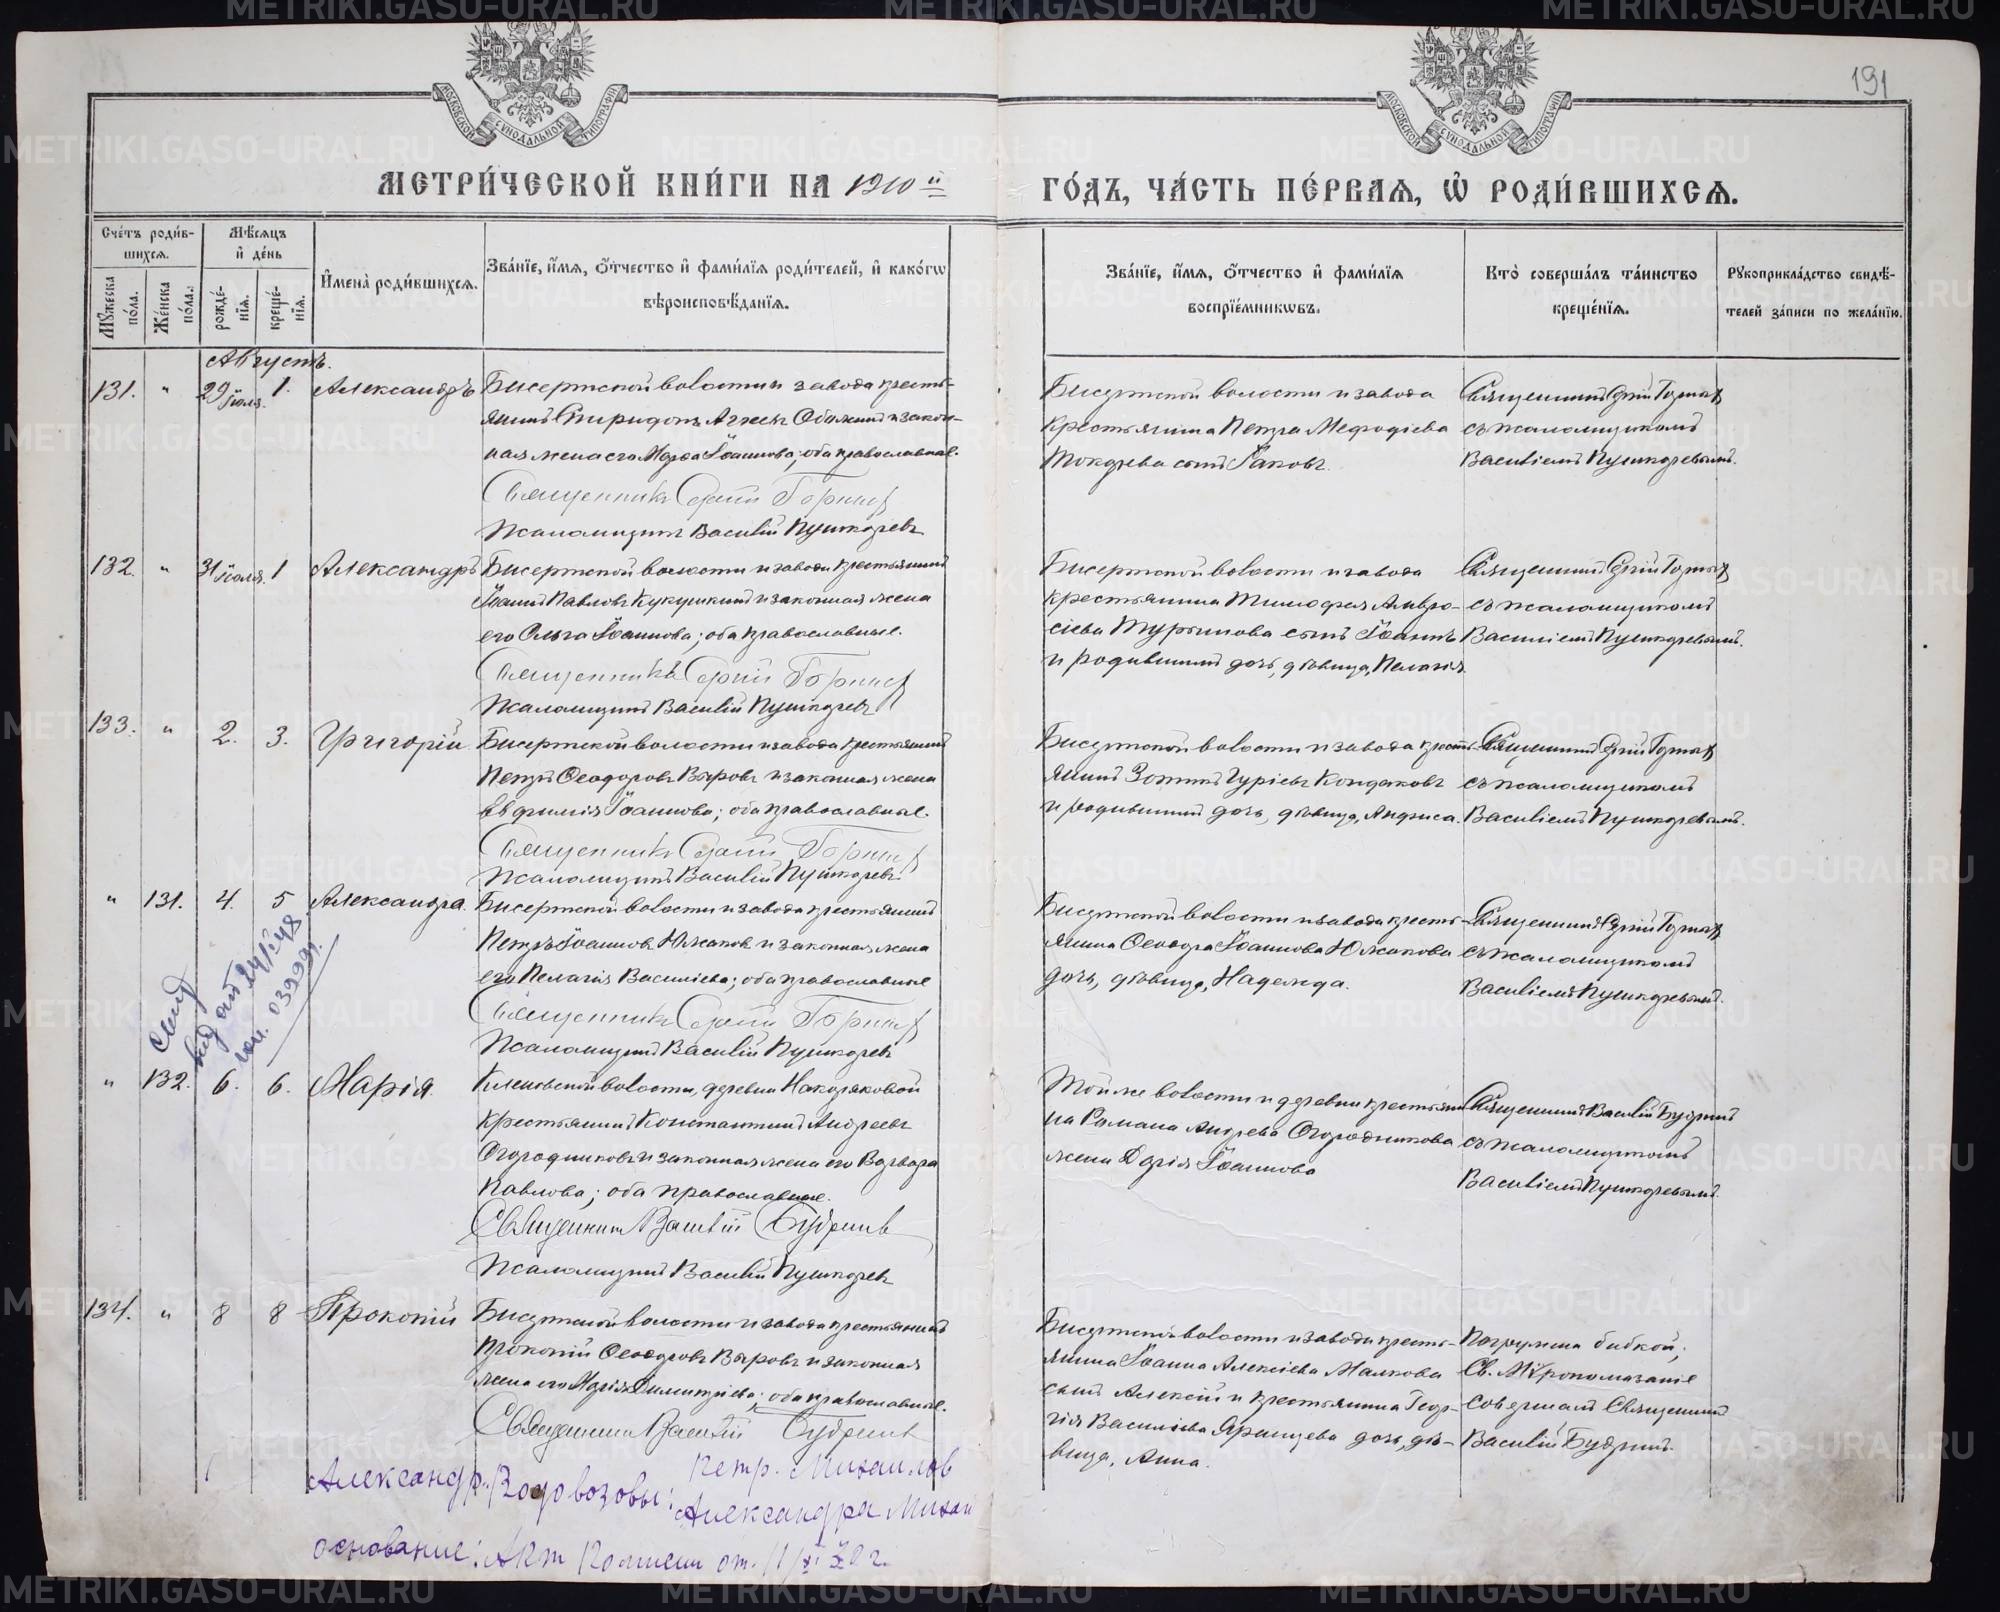 191
МОСКОВСКОЙ СѴНОДАЛЬНОЙ ТИПОГРАФІИ
МОСКОВСКОЙ СѴНОДАЛЬНОЙ ТИПОГРАФІИ
МЕТРИ́ЧЕСКОЙ КНИ́ГИ НА 1910й
ГО́ДЪ, ЧА́СТЬ ПЕ́РВАЯ, Ѡ҆ РОДИ́ВШИХСЯ.
Сче́тъ роди́в-
шихся.
Мꙋ́жеска по́ла.
Же́нска по́ла.
Мѣ́сяцъ
и҆ де́нь
рожде́-
нїя.
креще́-
нїя.
И҆мена̀ роди́вшихся.
Зва́нїе, и҆́мя, ѻ҆́тчество и҆ фами́лїя роди́телей, и҆ како́гѡ
вѣроисповѣ́данїя.
Зва́нїе, и҆́мя, ѻ҆́тчество и҆ фами́лїя
воспрїе́мникѡвъ.
Кто̀ соверша́лъ та́инство
креще́нїя.
Рꙋкоприкла́дство свидѣ́-
телей за́писи по жела́нїю.
Августъ.
131. " 29 Іюля. 1. Александръ
Бисертской волости и завода кресть-
янинъ Спиридонъ Агѣевъ и закон-
ная жена его Іоаннова; оба православные.
Священникъ Сергій
Псаломщикъ Василій Пушкаревъ
Бисертской волости и завода
крестьянина Петра Мефодіева
Токарева сынъ Іаковъ.
Священникъ Сергій
съ псаломщикомъ
Василіемъ Пушкаревымъ.
132. " 31 Іюля. 1 Александръ
Бисертской волости и завода крестьянинъ
Іоаннъ Павловъ Кукушкинъ и законная жена
его Ольга Іоаннова; оба православные.
Священникъ Сергій
Псаломщикъ Василій Пушкаревъ
Бисертской волости и завода
крестьянина Тимофея Амвро-
сіева Турыгнова сынъ Іоаннъ
и родившимъ дочь, дѣвица, Пелагія.
Священникъ Сергій
съ псаломщикомъ
Василіемъ Пушкаревымъ.
133. " 2. 3. Григорій.
Бисертской волости и завода крестьянинъ
Петръ Ѳеодоровъ Выровъ и законная жена
Евфимія Іоаннова; оба православные.
Священникъ Сергій
Псаломщикъ Василій Пушкаревъ.
Бисертской волости и завода кресть-
янинъ Зотикъ Гуріевъ Кондаковъ
и родившимъ дочь, дѣвица, Анфиса.
Священникъ Сергій
съ псаломщикомъ
Василіемъ Пушкаревымъ.
" 131. 4. 5 Александра.
Бисертской волости и завода крестьянинъ
Петръ Іоанновъ Южаковъ и законная жена
его Пелагія Василіева; оба православные
Священникъ Сергій
Псаломщикъ Василій Пушкаревъ
Бисертской волости и завода кресть-
янина Ѳеодора Іоаннова Южакова
дочь, дѣвица, Надежда.
Священникъ Сергій
съ псаломщикомъ
Василіемъ Пушкаревымъ.
" 132. 6. 6. Марія.
Кленовской волости, деревни Накоряковой
крестьянинъ Константинъ Андреевъ
Огородниковъ и законная жена его Варвара
Павлова; оба православные.
Священникъ Василій Будринъ
Псаломщикъ Василій Пушкаревъ
Той же волости и деревни крестьяни
на Романа Андреева Огородникова
жена Дарія Іоаннова
Священникъ Василій Будринъ
съ псаломщикомъ
Василіемъ Пушкаревымъ.
134. " 8 8 Прокопій
Бисертской волости и завода крестьянинъ
Прокопій Ѳеодоровъ Выровъ и законная
жена его Марія Димитріева; оба православные.
Священникъ Василій Будринъ
Бисертской волости и завода кресть-
янина Іоанна Алексіева Малкова
сынъ Алексій и крестьянина Геор-
гія Василіева Яранцева дочь, дѣ-
вица, Анна.
Погружена бабкой;
Св. Мѵропомазаніе
совершалъ Священникъ
Василій Будринъ.
Александр. Водовозовы:
Петр. Михаилов
Александра Михаи
основание: Акт Комиссии от. 11/
METRIKI.GASO-URAL.RU